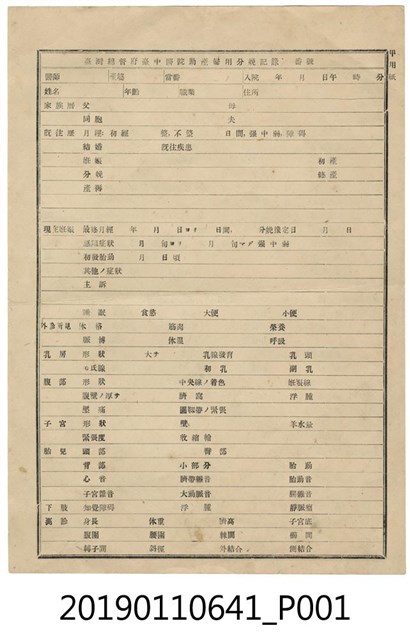 甲用紙
臺灣總督府臺中醫院助產婦用分娩記錄 番號
醫歸 主訴 當齡 入院 年 月 日午 時 分
姓名 年齡 職業 住所
家族歷 父 母
同胞 夫
既往歷 月經、初經 整、不整 日間、強中弱、障碍
結婚 既往疾患
姙娠 初產
分娩 經產
產褥
現在姙娠 最終月經 年 月 日ヨリ 日間、 分娩豫定日 月 日
惡阻症狀 月 旬ヨリ 月 旬マデ 強中弱
初發胎動 月 日頃
其他ノ症狀
主訴
睡眠 食慾 大便 小便
外診所見 体格 筋肉 榮養
脈搏 体温 呼吸
乳房 形狀 大サ 乳腺發育 乳頭
初乳 副乳
腹部 形狀 中央線ノ着色 姙娠線
腹壁ノ厚サ 臍窩 浮腫
壓痛 圓靱帶ノ緊張
子宮 形狀 壁 羊水量
緊張度 收縮輪
胎兒 頭部 臀部
背部 小部分 胎動
心音 臍帶雜音 胎動音
子宮雜音 大動脈音 腸雜音
下肢 知覺障碍 浮腫 靜脈瘤
高診 身長 体重 臍高 子宮底
腹圍 腰圍 棘間 櫛間
轉子間 斜徑 外結合 側結合
20190110641_P001